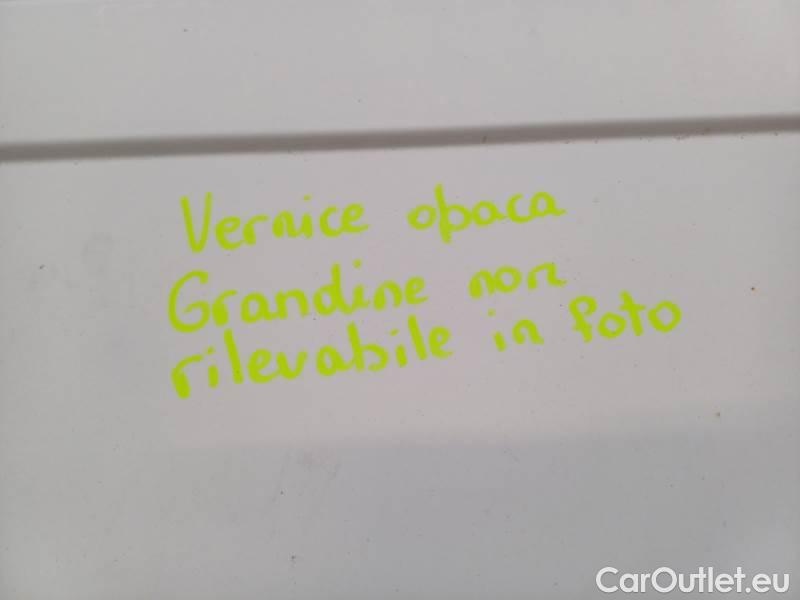 Vernice opaca
Grandine non
rilevabile in foto
CarOutlet.eu